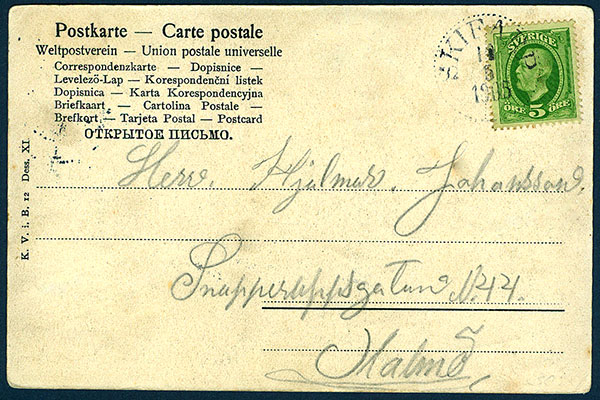 Postkarte — Carte postale
Weltpostverein — Union postale universelle
Correspondenzkarte — Dopisnice —
Levelező-Lap — Korespondenční listek
Dopisnica — Karta Korespondencyjna
Briefkaart — Cartolina Postale —
Brefkort — Tarjeta Postal — Postcard
ОТКРЫТОЕ ПИСЬМО.
SVERIGE
ÖRE 5 ÖRE
K. V. i. B. 12 Dess. XI
Herr. Hjalmar. Johansson.
N. 44.
Malmö